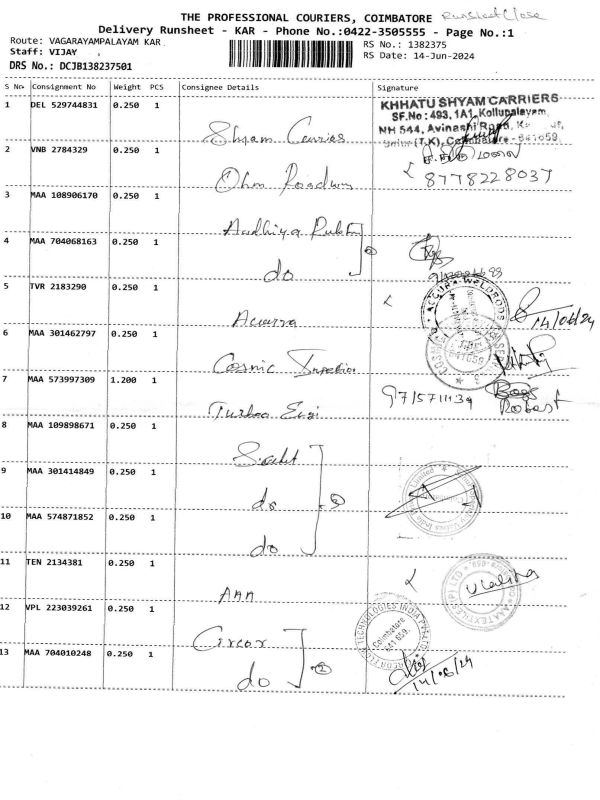 THE PROFESSIONAL COURIERS, COIMBATORE Runsheet Close
Delivery Runsheet - KAR - Phone No.:0422-3505555 - Page No.:1
Route: VAGARAYAMPALAYAM KAR
RS No.: 1382375
Staff: VIJAY
RS Date: 14-Jun-2024
DRS No.: DCJB138237501
S No Consignment No Weight PCS Consignee Details Signature
1 DEL 529744831 0.250 1 Shyam Carries
KHHATU SHYAM CARRIERS
SF.No : 493, 1A1, Kollupalayam,
NH 544, Avinashi Road,
2 VNB 2784329 0.250 1 Ohm
8778228037
3 MAA 108906170 0.250 1 Aadhiya
4 MAA 704068163 0.250 1 do 2
5 TVR 2183290 0.250 1 Acurra
14/06/24
6 MAA 301462797 0.250 1 Cosmic
7 MAA 573997309 1.200 1 Turbo Engi
Robert
8 MAA 109898671 0.250 1
9 MAA 301414849 0.250 1 do 3
10 MAA 574871852 0.250 1 do
11 TEN 2134381 0.250 1 Ann
12 VPL 223039261 0.250 1 Circor
TECHNOLOGIES INDIA PVT
Coimbatore
641 659.
13 MAA 704010248 0.250 1 do 2
14/06/24